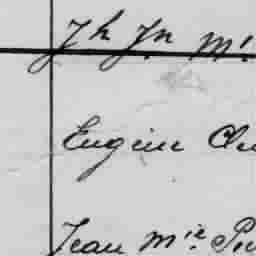 Jh Jn M.
Eugène
Jean Mie